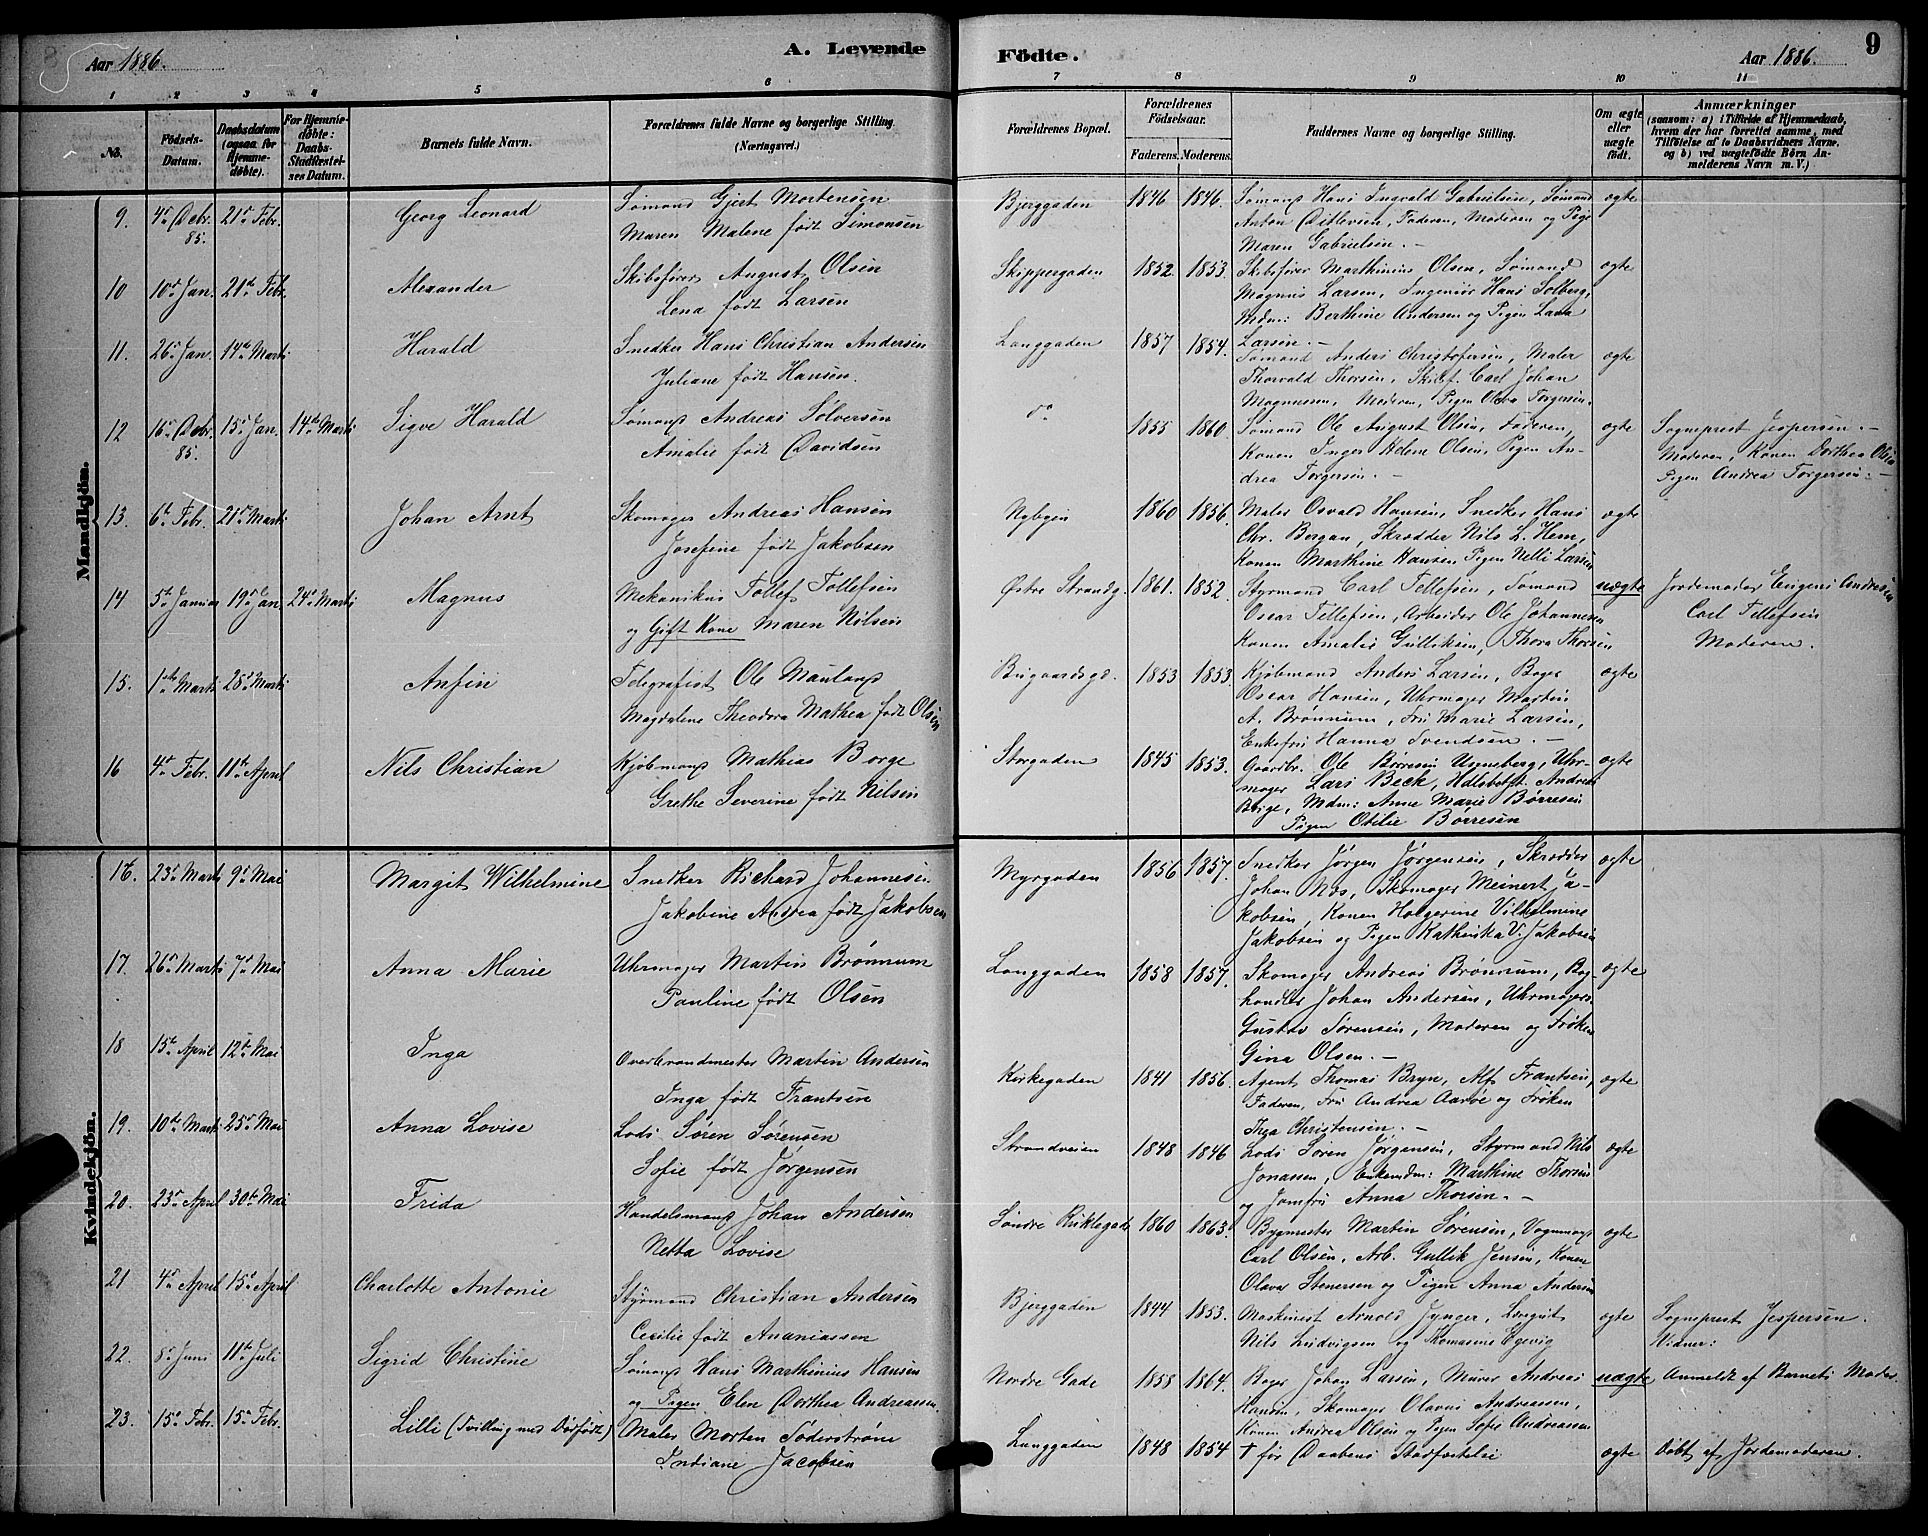 Aar 1886.
A. Levende
Födte.
Aar 1886.
9
1 2 3 4 5 6 7 8 9 10 11
No.
Födsels-Datum.
Daabsdatum (ogsaa for Hjemme-döbte).
For Hjemme-döbte: Daabs-Stadfæstel-ses Datum.
Barnets fulde Navn.
Forældrenes fulde Navne og borgerlige Stilling.
(Næringsvei.)
Forældrenes Bopæl.
Forældrenes Födselsaar.
Faderens. Moderens.
Faddernes Navne og borgerlige Stilling.
Om ægte eller uægte födt.
Anmærkninger
(saasom: a) i Tilfælde af Hjemmedaab, hvem der har forrettet samme, med Tilföielse af to Daabsvidners Navne, og b) ved uægtefödte Börn An-melderens Navn m. V.)
Mandkjön.
9. 4de Debr. 85. 21de Febr. Georg Leonard
Sømand Gjert Mortensen
Maren Malene født Simonsen
Bjerggaden 1846 1846
Sømand Hans Ingvald Gabrielsen, Sømand
Anton Ditlevsen, Faderen, Moderen og Pige
Maren Gabrielsen. —
ægte
10 10de Jan. 21de Febr. Alexander
Skibsfører August Olsen
Lena født Larsen
Skippergaden 1852 1853.
Skibsfører Marthinius Olsen, Sømand
Magnus Larsen, Ingeniør Hans Solberg,
Mdm: Berthine Andersen og Pigen Laura
Larsen. —
ægte
11. 26de Jan. 14de Marts Harald
Snedker Hans Christian Andersen
Juliane født Hansen.
Langgaden 1857 1854.
Sømand Anders Christofersen, Maler
Thorvald Thorsen, Skibsf. Carl Johan
Magnussen, Moderen, Pigen Olava Torgersen.
ægte
12 16de Debr. 85. 15de Jan. 14de Marts Sigve Harald
Sømand Andreas Sølversen
Amalie født Davidsen
do 1855 1860.
Sømand Ole August Olsen, Faderen,
Konen Inger Helene Olsen, Pigen An-
drea Torgersen. —
ægte
Sogneprest Jespersen. —
Moderen, Konen Dorthea Olsen
Pigen Andrea Torgersen. —
13. 6te Febr. 21de Marts Johan Arnt
Skomager Andreas Hansen
Josefine født Jakobsen
Nybyen 1860 1856.
Maler Osvald Hansen, Snedker Hans
Chr. Bergan, Skrædder Nils L. Hem,
Konen Marthine Hansen Pigen Nelli Larsen
ægte
14 5te Januar 19de Jan 24de Marts Magnus
Mekanikus Tollef Tollefsen
og Gift Kone Maren Nilsen
Østre Strandg. 1861. 1852.
Styrmand Carl Tellefsen, Sømand
Oscar Tellefsen, Arbeider Ole Johannesen
Konen Amalie Gulliksen, Thora Thorsen
uægte
Jordemoder Eugeni Andresen
Carl Tellefsen
Moderen.
15. 1ste Marts 28de Marts Anfin
Telegrafist Ole Mauland
Magdalene Theodora Mathea født Olsen
Brugaardsgd. 1853 1853.
Kjøbmand Anders Larsen, Bager
Oscar Hansen, Uhrmager Martin
A. Brønnum, Fru Marie Larsen,
Enkefru Hanna Svendsen. —
ægte
16 4de Febr. 11te April Nils Christian
Kjøbmand Mathias Borge
Grethe Severine født Nilsen
Storgaden 1845 1853.
Gaardbr. Ole Børresen Ursneberg, Uhr-
mager Lars Beck, Hdlsbetj. Andreas
Borge, Mdm: Anne Marie Børresen
Pigen Otilie Børresen
ægte
Kvindekjön.
16. 23de Marts 9de Mai Margit Wilhelmine
Snedker Richard Johannesen
Jakobine Andrea født Jakobsen
Myrgaden 1856 1857.
Snedker Jørgen Jørgensen, Skrædder
Johan Næs, Skomager Meinert Ja-
kobsen, Konen Holgerine Vilhelmine
Jakobsen og Pigen Kathinka V. Jakobsen
ægte
17. 26de Marts 7de Mai Anna Marie
Uhrmager Martin Brønnum
Pauline født Olsen
Langgaden 1858 1857.
Skomager Andreas Brønnum, Bog-
handler Johan Andersen, Uhrmagers.
Gustav Sørensen, Moderen og Frøken
Gina Olsen. —
ægte
18 15de April 12te Mai Inga
Overbrandmester Martin Andersen
Inga født Frantsen
Kirkegaden 1841 1856.
Agent Thomas Bryn, Alf Frantsen,
Faderen, Fru Andrea Aarve og Frøken
Thea Christensen. —
ægte
19. 10de Marts 25de Mai Anna Lovise
Lods Sören Sørensen
Sofie født Jørgensen
Strandveien 1848 1846
Lods Søren Jørgensen, Styrmand Nils
Jonassen, Enkemdm: Marthine Thorsen
og Jomfru Anna Thorsen. —
ægte
20. 23de April 30te Mai Frida
Handelsmand Johan Andersen
Netta Lovise
Søndre Rukklegade 1860 1863.
Bygmester Martin Sørensen, Vognmand
Carl Olsen, Arb. Gullik Jensen, Konen
Olava Stenersen og Pigen Anna Andersen
ægte
21 4de April 15de April Charlotte Antonie
Styrmand Christian Andersen
Cecilie født Ananiassen
Bjerggaden 1844 1853.
Maskinist Arnold
Nils Ludvigsen og
ægte
Sogneprest Jespersen.
Vidner:
22. 8de Juni 11te Juli Sigrid Christine
Sømand Hans Marthinius Hansen
og Pigen Elen Dorthea Andreassen.
Nordre Gade 1858 1864.
Bager Johan Larsen, Murer Andreas
Hansen, Skomager Olavus Andreassen,
Konen Andrea Olsen og Pigen Sofie Andreassen
uægte
Anmeldt af Barnets Moder.
23. 15de Febr. 15de Febr. Lilli (Tvilling med Dødfødt)
Maler Morten Söderstrøm
Indiane Jacobsen
Langgaden 1848 1854
† før Daabens Stadfæstelse
ægte
Döbt af Jordemoderen.